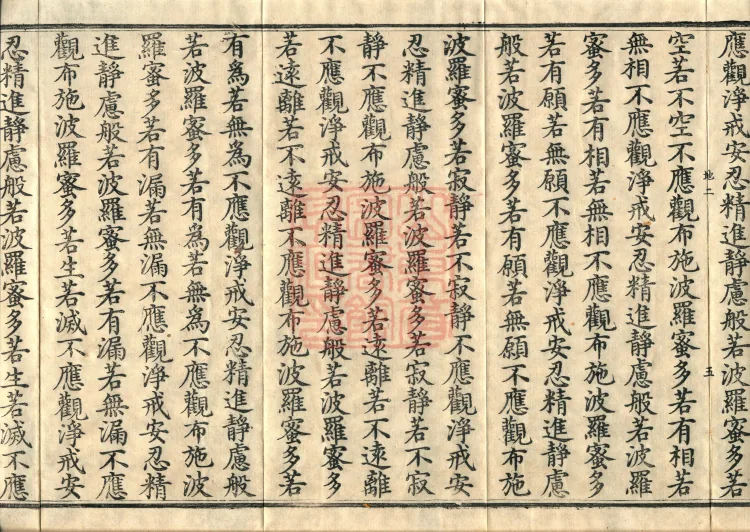 應觀淨戒安忍精進靜慮般若波羅蜜多若
地二
五
空若不空不應觀布施波羅蜜多若有相若
無相不應觀淨戒安忍精進靜慮般若波羅
蜜多若有相若無相不應觀布施波羅蜜多
若有願若無願不應觀淨戒安忍精進靜慮
般若波羅蜜多若有願若無願不應觀布施
波羅蜜多若寂靜若不寂靜不應觀淨戒安
忍精進靜慮般若波羅蜜多若寂靜若不寂
靜不應觀布施波羅蜜多若遠離若不遠離
不應觀淨戒安忍精進靜慮般若波羅蜜多
若遠離若不遠離不應觀布施波羅蜜多若
有爲若無爲不應觀淨戒安忍精進靜慮般
若波羅蜜多若有爲若無爲不應觀布施波
羅蜜多若有漏若無漏不應觀淨戒安忍精
進靜慮般若波羅蜜多若有漏若無漏不應
觀布施波羅蜜多若生若滅不應觀淨戒安
忍精進靜慮般若波羅蜜多若生若滅不應